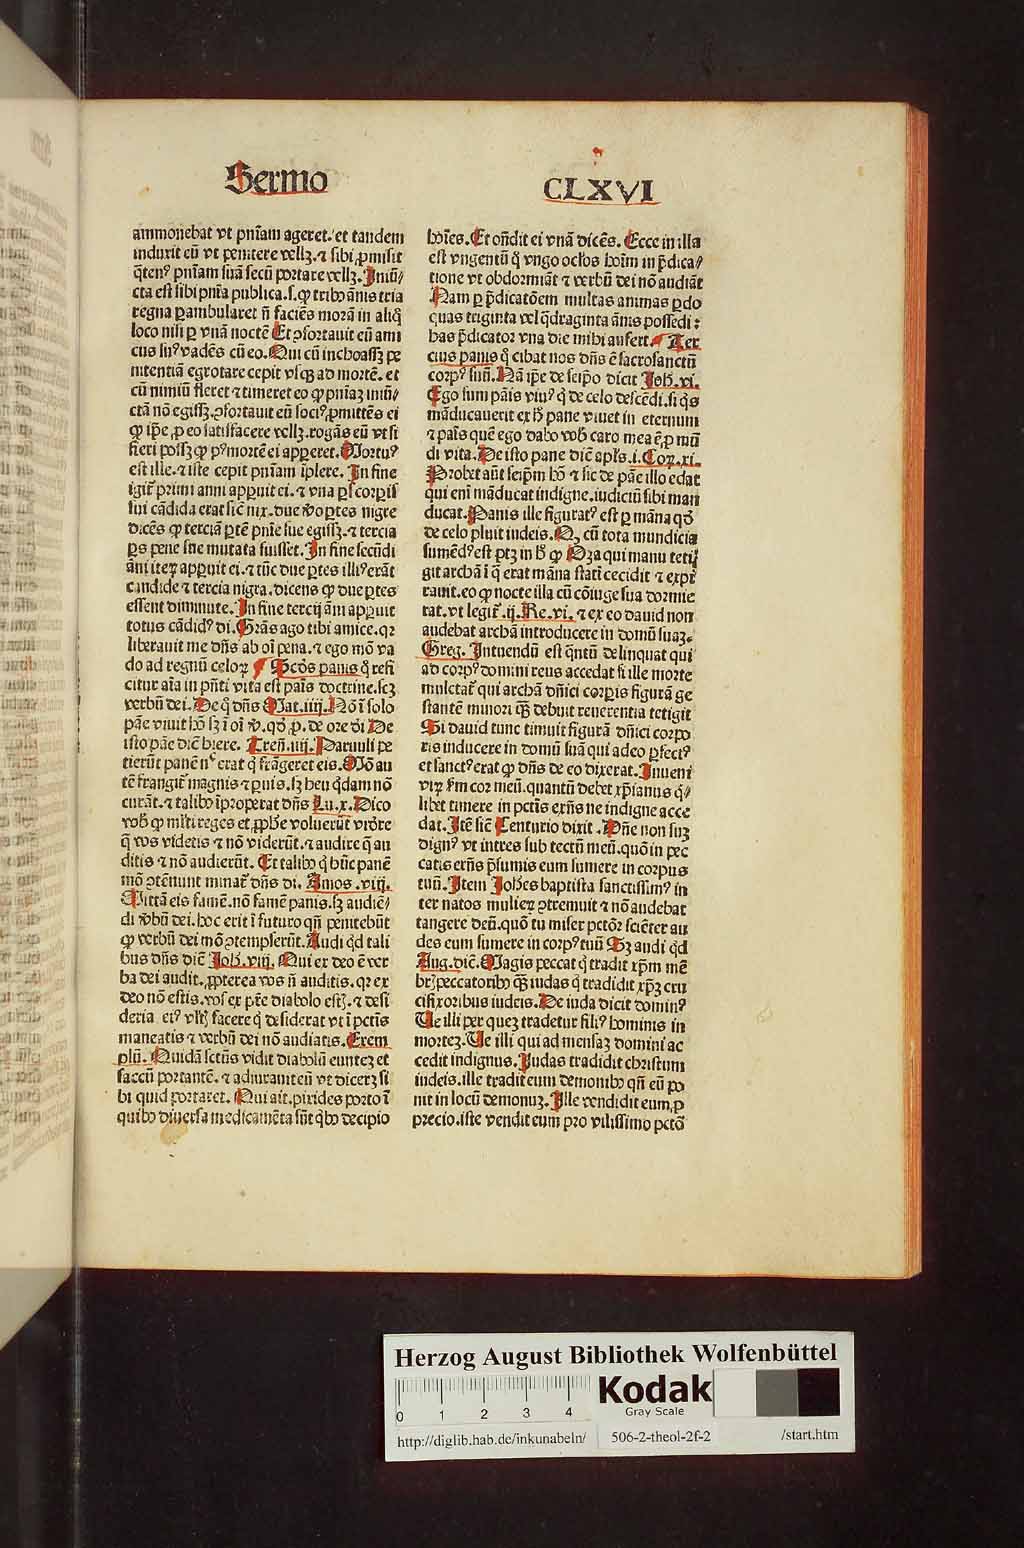 Sermo
CLXVI
ammonebat vt pnīam ageret. et tandem
induxit eū vt penitere vellꝫ. ⁊ sibi ꝓmisit
q̄tenꝰ pnīam suā secū portare vellꝫ. Iniū⸗
cta est sibi pnīa publica. s. ꝙ tribꝰ ānis tria
regna ꝑambularet ñ faciēs morā in aliq̊
loco nisi ꝑ vnā noctē Et ↄfortauit eū ami
cus suꝰ vadēs cū eo. Qui cū inchoassꝫ pe
nitentiā egrotare cepit vsqꝫ ad mortē. et
cū nimiū fleret ⁊ timeret eo ꝙ pnīaꝫ iniū⸗
ctā nō egissꝫ. ↄfortauit eū sociꝰ, ꝓmittēs ei
ꝙ ip̄e ꝓ eo satisfacere vellꝫ. rogās eū vt si
fieri possꝫ ꝙ pꝰ mortē ei apꝑeret. Mortuꝰ
est ille. ⁊ iste cepit pnīam īplere. In fine
igit̄ primi anni apꝑuit ei. ⁊ vna ꝑs corꝑis
sui cādida erat sic̄ nix. due ꝟo ꝑtes nigre
dicēs ꝙ terciā ꝑtē pnīe sue egissꝫ. ⁊ tercia
ꝑs pene sue mutata fuisset. In fine secūdi
āni iteꝝ apꝑuit ei. ⁊ tūc due ꝑtes illiꝰ erāt
candide ⁊ tercia nigra. dicens ꝙ due ꝑtes
essent diminute. In fine tercij āni apꝑuit
totus cādidꝰ di. Grās ago tibi amice. qꝛ
liberauit me dn̄s ab oī pena. ⁊ ego mō va
do ad regnū celoꝝ ¶ Scd̄s panis q̇ refi
citur aīa in pn̄ti vita est pais̄ doctrine. scꝫ
verbū dei. De q̊ dn̄s Mat. iiij. Nō ī solo
pāe viuit hō sꝫ ī oī ꝟ. qd̓ ꝓ. de ore di De
isto pāe dic̄ hiere. Tren̄. iiij. Paruuli pe
tierūt panē nᵉ erat q̇ frāgeret eis. Mō au
tē frangit̄ magnis ⁊ ꝑuis. sꝫ heu q̇dam nō
curāt. ⁊ talibꝰ īproperat dn̄s Lu. x. Dico
vob̄ ꝙ ml̄ti reges et ꝓphe voluerūt vidēre
q̄ vos videtis ⁊ nō viderūt. ⁊ audire q̄ au
ditis ⁊ nō audierūt. Et talibꝰ q̇ hūc panē
mō ↄtēnunt minat̄ dn̄s di. Amos. viij.
Mittā eis famē. nō famē panis. sꝫ audiē⸗
di ꝟbū dei. hoc erit ī futuro qn̄ penitebūt
ꝙ verbū dei mō ↄtempserūt. Audi qd̓ tali
bus dn̄s dic̄ Joh. viij. Qui ex deo ē ver
ba dei audit. ꝓpterea vos ñ auditis. qꝛ ex
deo nō estis. vos ex ptē diabolo estꝭ. ⁊ desi
deria eiꝰ vltꝭ facere q̇ desiderat vt ī pctīs
maneatis ⁊ verbū dei nō audiatis. Exem
plū. Quidā sctūs vidit diabolū eunteꝫ et
saccū portantē. ⁊ adiurauit eū vt dicerꝫ si
bi quid portaret. Qui ait. pixides porto ī
quibꝰ diuersa medicamēta sūt q̇bꝰ decipio
hoīes. Et on̄dit ei vnā dicēs. Ecce in illa
est vngentū q̊ vngo oclos hoīm in p̄dica⸗
tione vt obdormiāt ⁊ verbū dei nō audiāt
Nam ꝑ p̄dicatōem multas animas ꝑdo
quas triginta vel q̊draginta ānis possedi:
has p̄dicator vna die mihi aufert ¶ Ter
cius panis q̊ cibat nos dn̄s ē sacrosanctū
corpꝰ suū. Nā ip̄e de seip̄o dicit Joh. vi.
Ego sum pais̄ viuꝰ q̇ de celo descēdi. si q̇s
māducauerit ex h̊ pane viuet in eternum
⁊ pais̄ quē ego dabo vob̄ caro mea ē ꝓ mū
di vita. De isto pane dic̄ apl̄s. i. Coꝝ. xi.
Probet aūt seip̄m hō ⁊ sic de pāe illo edat
qui enī māducat indigne. iudiciū sibi man
ducat. Panis ille figuratꝰ est ꝑ māna qd̓
de celo pluit iudeis. Qꝫ cū tota mundicia
sumēdꝰ est ptꝫ in h̊ ꝙ Oza qui manu teti
git archā ī q̄ erat māna statī cecidit ⁊ expi
rauit. eo ꝙ nocte illa cū cōiuge sua dormie
rat. vt legit̄. ij. Re. vi. ⁊ ex eo dauid non
audebat archā introducere in domū suaꝫ.
Greg. Intuendū est q̄ntū delinquat qui
ad corpꝰ domini reus accedat si ille morte
mulctat̄ qui archā dn̄ici corꝑis figurā ge
stantē minori qꝫ debuit reuerentia tetigit
Si dauid tunc timuit figurā dn̄ici corpo
ris inducere in domū suā qui adeo ꝑfectꝰ
et sanctꝰ erat ꝙ dn̄s de eo dixerat. Inueni
viꝝ s̄m cor meū. quantū debet xp̄ianus q̇⸗
libet timere in pctīs exn̄s ne indigne acce
dat. Itē sic̄ Centurio dixit. Dn̄e non suꝫ
dignꝰ vt intres sub tectū meū. quō in pec
catis exn̄s p̄sumis eum sumere in corpus
tuū. Item Joh̄es baptista sanctissimꝰ in
ter natos mulieꝝ ↄtremuit ⁊ nō audebat
tangere deū. quō tu miser pctōr sciēter au
des eum sumere in corpꝰ tuū Sꝫ audi qd̓
Aug. dic̄. Magis peccat q̇ tradit xp̄m mē
bꝝ peccatoribꝰ qꝫ iudas q̇ tradidit xp̄ꝫ cru
cifixoribus iudeis. De iuda dicit dominꝰ
Ve illi per queꝫ tradetur filiꝰ hominis in
morteꝫ. Ve illi qui ad mensaꝫ domini ac
cedit indignus. Iudas tradidit christum
iudeis. ille tradit eum demonibꝰ qn̄ eū po
nit in locū demonuꝫ. Ille vendidit eum ꝓ
precio. iste vendit eum pro vilissimo pctō
Herzog August Bibliothek Wolfenbüttel
0 1 2 3 4
Kodak
Gray Scale
http://diglib.hab.de/inkunabeln/ 506-2-theol-2f-2 /start.htm